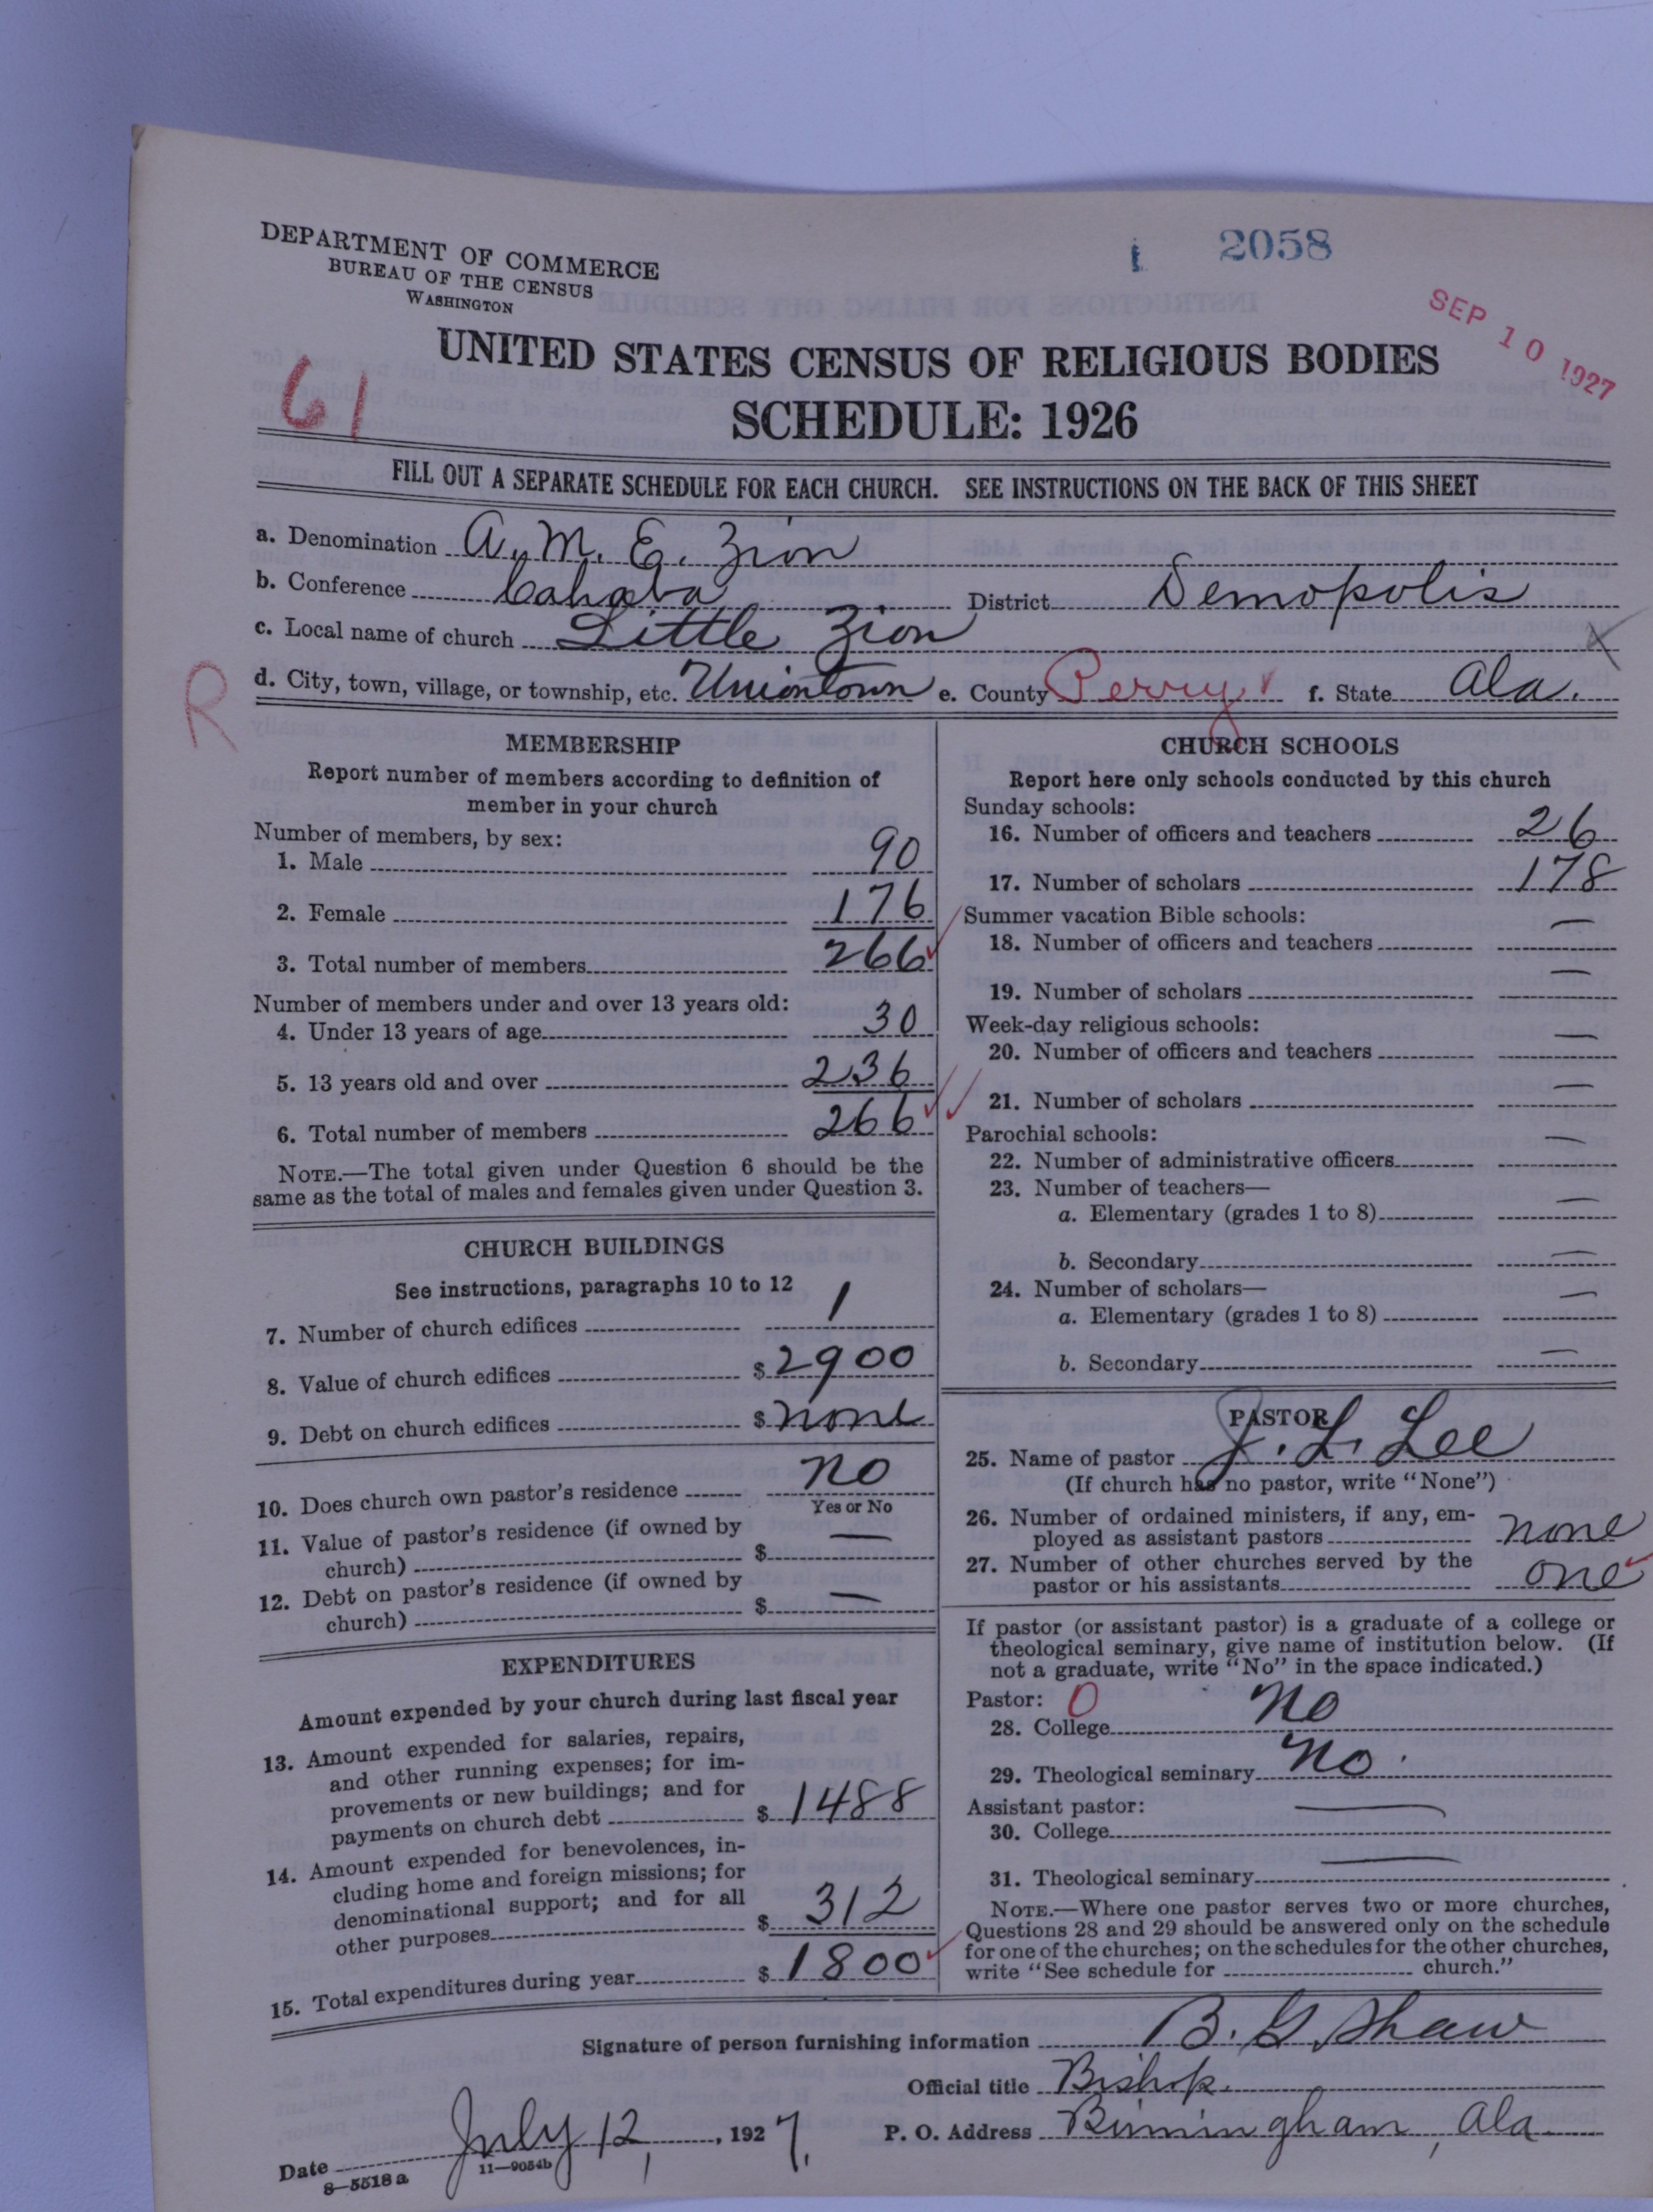 DEPARTMENT OF COMMERCE
BUREAU OF THE CENSUS
WASHINGTON
2058
SEP 10 1927
61
UNITED STATES CENSUS OF RELIGIOUS BODIES
SCHEDULE: 1926
FILL OUT A SEPARATE SCHEDULE FOR EACH CHURCH. SEE INSTRUCTIONS ON THE BACK OF THIS SHEET
a. Denomination A. M. E. Zion
b. Conference Cahaba District Demopolis
c. Local name of church Little Zion
R
d. City, town, village, or township, etc. Uniontown e. County Perry f. State Ala.
MEMBERSHIP
Report number of members according to definition of
member in your church
Number of members, by sex:
1. Male 90
2. Female 176
3. Total number of members 266
Number of members under and over 13 years old:
4. Under 13 years of age 30
5. 13 years old and over 236
6. Total number of members 266
NOTE.—The total given under Question 6 should be the
same as the total of males and females given under Question 3.
CHURCH BUILDINGS
See instructions, paragraphs 10 to 12
7. Number of church edifices 1
8. Value of church edifices $ 2900
9. Debt on church edifices $ none
10. Does church own pastor's residence no
Yes or No
11. Value of pastor's residence (if owned by
church) $ —
12. Debt on pastor's residence (if owned by
church) $ —
EXPENDITURES
Amount expended by your church during last fiscal year
13. Amount expended for salaries, repairs,
and other running expenses; for im-
provements or new buildings; and for
payments on church debt $ 1488
14. Amount expended for benevolences, in-
cluding home and foreign missions; for
denominational support; and for all
other purposes $ 312
15. Total expenditures during year $ 1800
CHURCH SCHOOLS
Report here only schools conducted by this church
Sunday schools:
16. Number of officers and teachers 26
17. Number of scholars 178
Summer vacation Bible schools:
18. Number of officers and teachers —
19. Number of scholars —
Week-day religious schools:
20. Number of officers and teachers —
21. Number of scholars —
Parochial schools:
22. Number of administrative officers —
23. Number of teachers—
a. Elementary (grades 1 to 8) —
b. Secondary —
24. Number of scholars—
a. Elementary (grades 1 to 8) —
b. Secondary —
PASTOR
25. Name of pastor J. L. Lee
(If church has no pastor, write "None")
26. Number of ordained ministers, if any, em-
ployed as assistant pastors none
27. Number of other churches served by the
pastor or his assistants one
If pastor (or assistant pastor) is a graduate of a college or
theological seminary, give name of institution below. (If
not a graduate, write "No" in the space indicated.)
Pastor: 0
28. College no
29. Theological seminary no.
Assistant pastor:
30. College —
31. Theological seminary —
NOTE.—Where one pastor serves two or more churches,
Questions 28 and 29 should be answered only on the schedule
for one of the churches; on the schedules for the other churches,
write "See schedule for church."
Signature of person furnishing information B. G. Shaw
Official title Bishop.
Date July 12, 1927. P. O. Address Birmingham, Ala
8—5518a 11—9054b